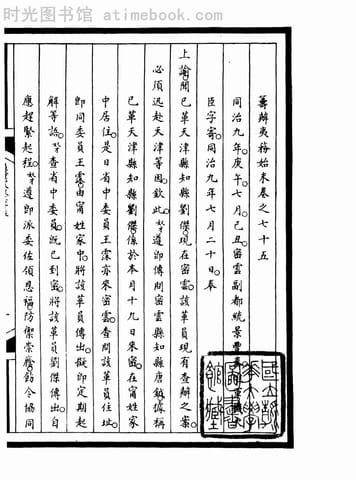 时光图书馆 — www.atimebook.com
籌辦夷務始末卷之七十五
同治九年庚午七月己丑密雲副都統景豐
臣字寄同治九年七月二十日奉
上諭聞已革天津縣知縣劉傑現在密雲該革員現有查辦之案
必須迅赴天津等因欽此遵即傳問密雲縣知縣唐據稱
已革天津縣知縣劉傑係於本月十九日來密在甯姓家
中居住是日省中委員王霖亦來密雲查問該革員住址
即同委員王霖由甯姓家中將該革員傳出擬即定期起
解等語查省中委員既已到密將該革員劉傑傳出自
應趕緊起程遵即派委佐領恩福防禦崇飭令協同